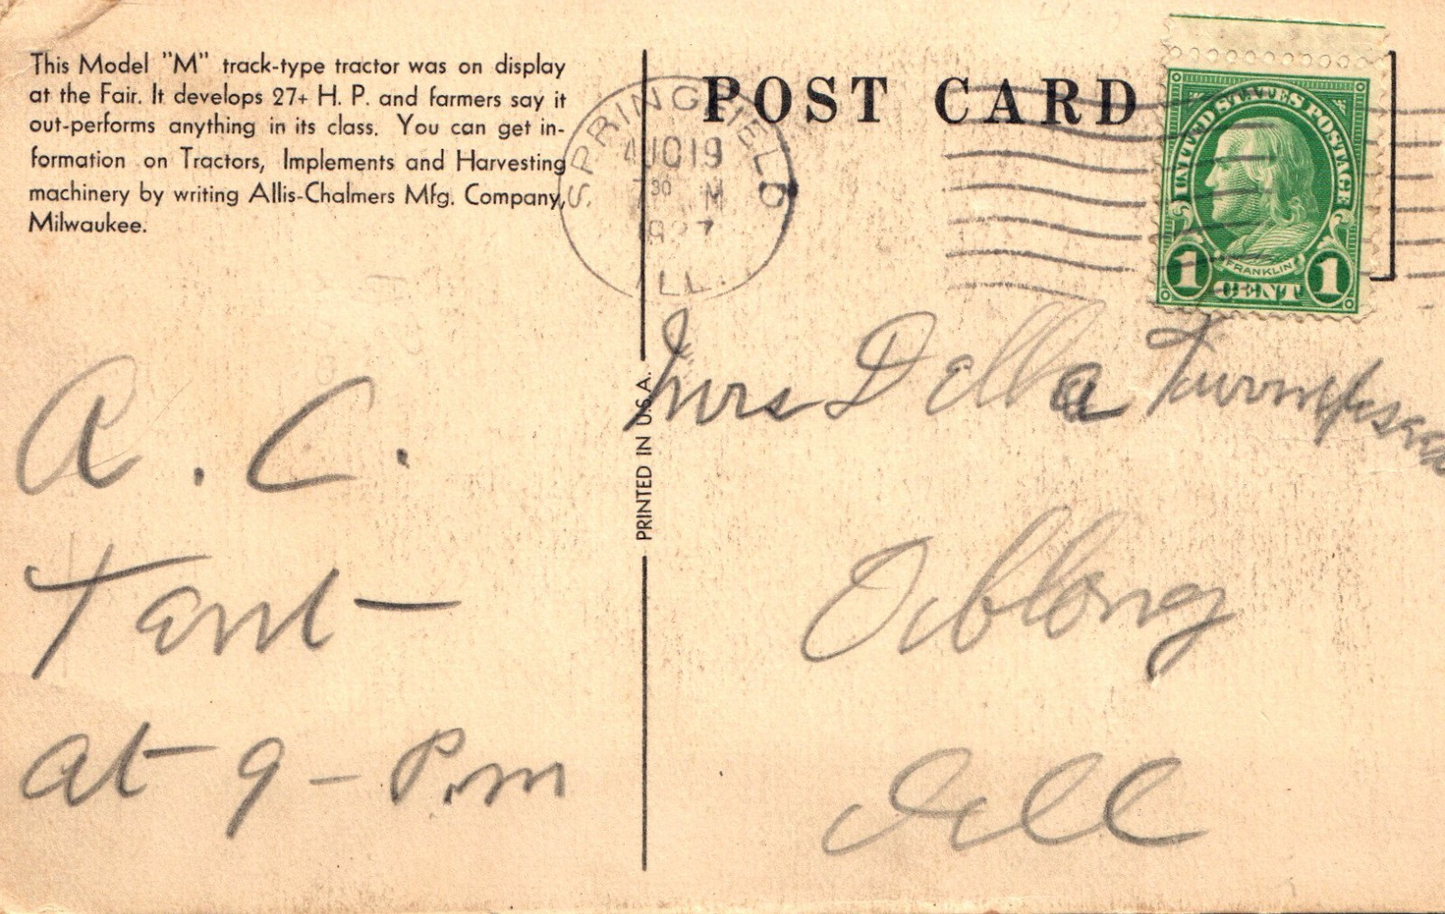 This Model "M" track-type tractor was on display
at the Fair. It develops 27+ H. P. and farmers say it
out-performs anything in its class. You can get in-
formation on Tractors, Implements and Harvesting
machinery by writing Allis-Chalmers Mfg. Company,
Milwaukee.
POST CARD
SPRINGFIELD
AUG 19
7 30 M
ILL.
UNITED STATES POSTAGE
FRANKLIN
1 CENT 1
PRINTED IN U.S.A.
A. C.
Tent
at 9 - P.m
Mrs Della
Oblong
Ill